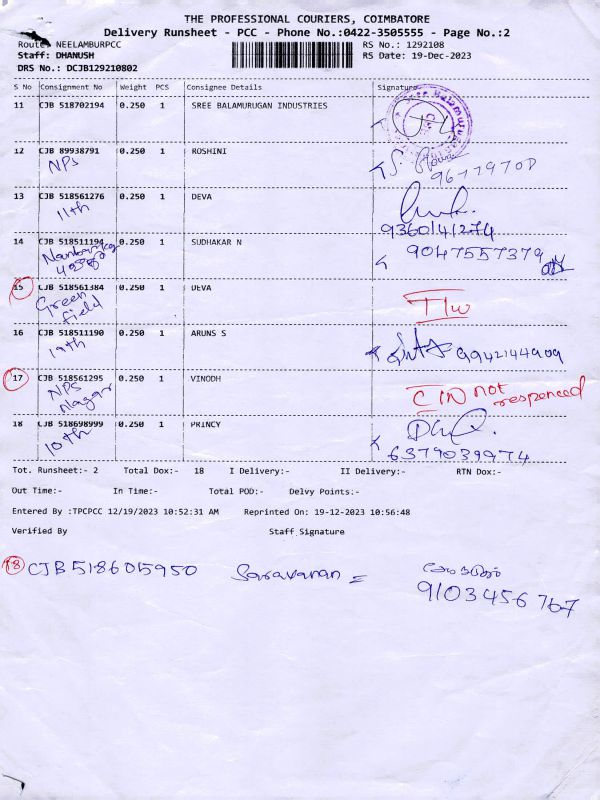 THE PROFESSIONAL COURIERS, COIMBATORE
Delivery Runsheet - PCC - Phone No.:0422-3505555 - Page No.:2
Route: NEELAMBURPCC RS No.: 1292108
Staff: DHANUSH RS Date: 19-Dec-2023
DRS No.: DCJB129210802
S No Consignment No Weight PCS Consignee Details Signature
11 CJB 518702194 0.250 1 SREE BALAMURUGAN INDUSTRIES
12 CJB 89938791 0.250 1 ROSHINI
NPS
13 CJB 518561276 0.250 1 DEVA
11th 9360141274
14 CJB 518511194 0.250 1 SUDHAKAR N 9047557379
15 CJB 518561384 0.250 1 DEVA
Green field
16 CJB 518511190 0.250 1 ARUNS S
19th 9942144909
17 CJB 518561295 0.250 1 VINODH
NPS Nagar not respenced
18 CJB 518698999 0.250 1 PRINCY
10th 6379039974
Tot. Runsheet:- 2 Total Dox:- 18 I Delivery:- II Delivery:- RTN Dox:-
Out Time:- In Time:- Total POD:- Delvy Points:-
Entered By :TPCPCC 12/19/2023 10:52:31 AM Reprinted On: 19-12-2023 10:56:48
Verified By Staff Signature
18 CJB518605950 Saravanan =
9103456767